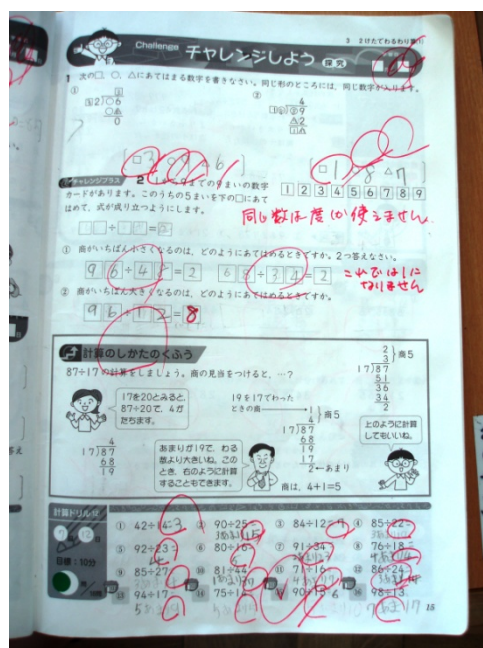 3 2けたでわるわり算(1)
Challenge チャレンジしよう 探究
1 次の□, ○, △にあてはまる数字を書きなさい。同じ形のところには, 同じ数字が入ります。
① ②
□3 ○9 △6
□1 ○8 △7
チャレンジプラス
2 1から9までの9まいの数字
カードがあります。このうちの5まいを下の□にあ
てはめて, 式が成り立つようにします。
1 2 3 4 5 6 7 8 9
同じ数は1度しか使えません
① 商がいちばん小さくなるのは, どのようにあてはめるときですか。2つ答えなさい。
96÷48=2 68÷34=2
これでは1に
なりません
② 商がいちばん大きくなるのは, どのようにあてはめるときですか。
96÷12=8
計算のしかたのくふう
87÷17の計算をしましょう。商の見当をつけると, …?
17を20とみると,
87÷20で, 4が
たちます。
4
17)87
68
19
あまりが19で, わる
数より大きいね。この
とき, 右のように計算
することもできます。
19を17でわった
ときの商
1
4
商5
17)87
68
19
17
2 ←あまり
商は, 4+1=5
2
3
商5
17)87
51
36
34
2
上のように計算
してもいいね。
計算ドリル 12
目標:10分
① 42÷14=3 ② 90÷25 ③ 84÷12=7 ④ 85÷22
⑤ 92÷23= ⑥ 80÷16 ⑦ 91÷34 ⑧ 76÷18
⑨ 85÷27 ⑩ 81÷44 ⑪ 71÷16 ⑫ 86÷24
⑬ 94÷17 ⑭ 75÷14 ⑮ 90÷ ⑯ 98÷13
15